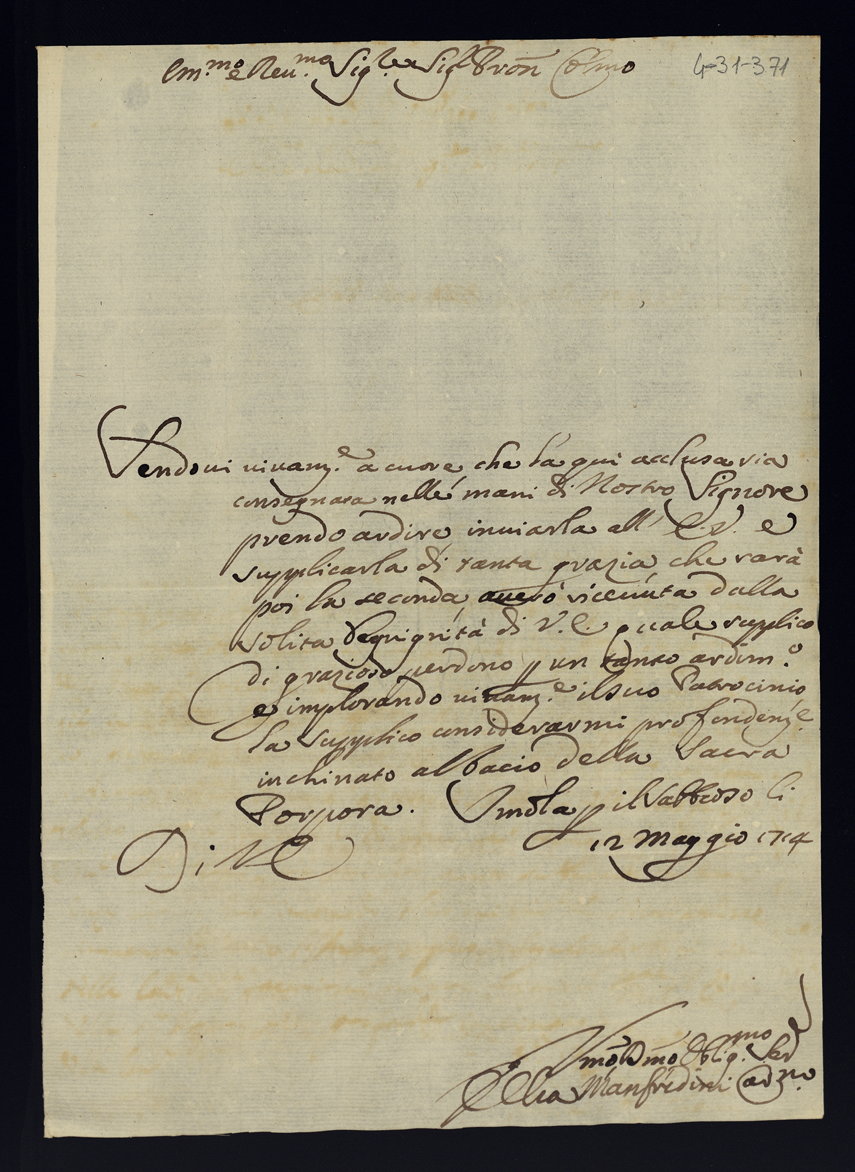 Em.mo e Reu.mo Sig.re Sig.re Pron Colmo
4-31-371
Tendoui uiuam.e a cuore che la qui acclusa sia
consegnata nelle mani di Nostro Signore
prendo ardire inuiarla all' E.V. e
supplicarla di tanta grazia che sarà
poi la seconda, auerò riceuuta dalla
solita Benignità di V.E. quale supplico
di grazioso perdono p un tanto ardim.o
e implorando uiuam.e il suo Patrocinio
la supplico considerarmi profondam.e
inchinato al bacio della Sacra
Porpora. Imola p il li
12 Maggio 1714
Di VE
Vmo Dmo Oblig.mo Ser
Elia Manfredini